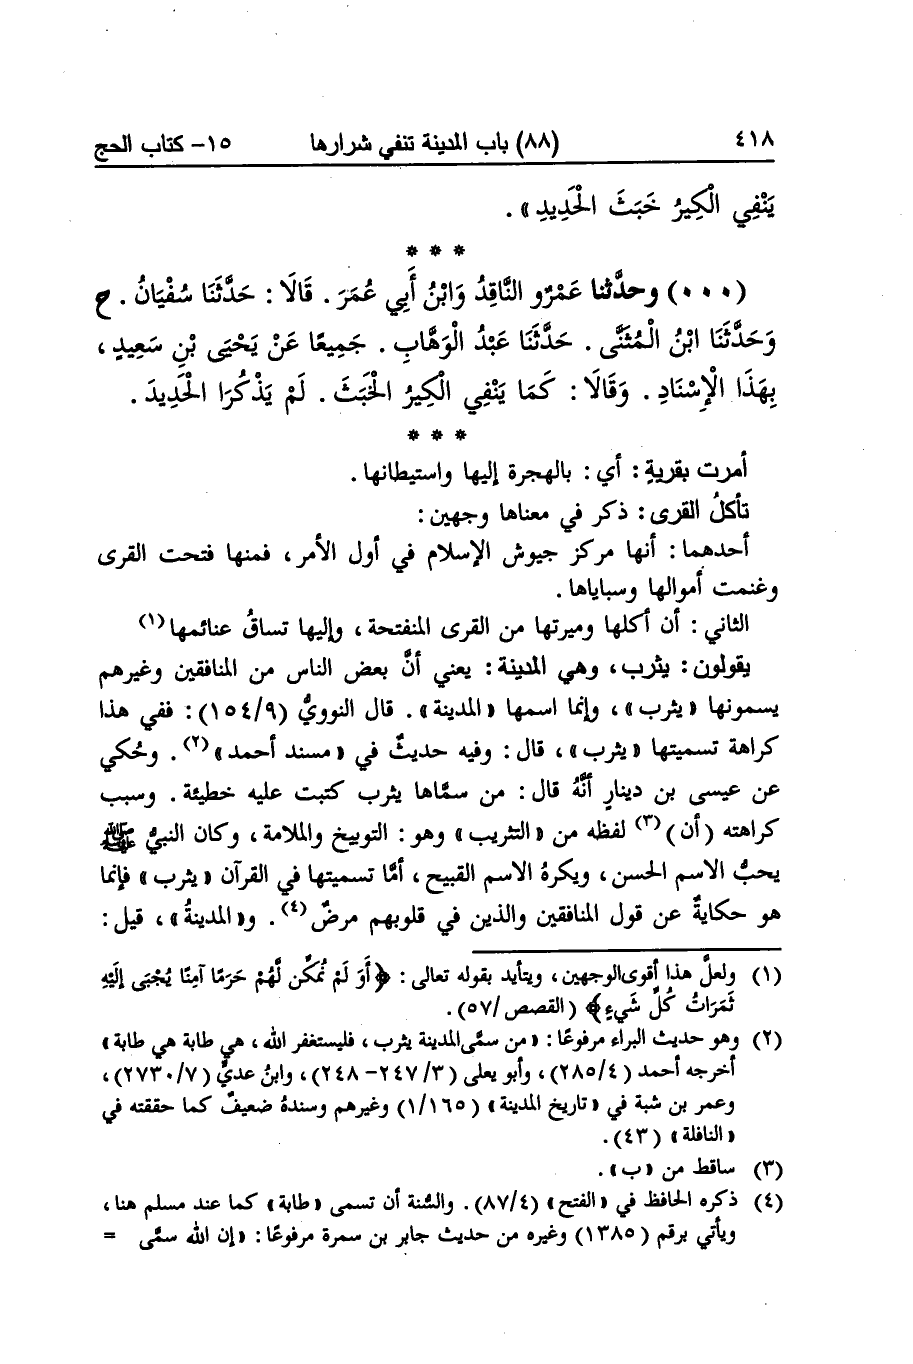 ٤١٨ (٨٨) باب المدينة تنفي شرارها ١٥- كتاب الحج
يَنْفِي الْكِيرُ خَبَثَ الْحَدِيدِ» .
* * *
(٠٠٠) وحدَّثنا عَمْرٌو النَّاقِدُ وَابْنُ أَبِي عُمَرَ . قَالَا : حَدَّثَنَا سُفْيَانُ . ح
وَحَدَّثَنَا ابْنُ الْمُثَنَّى . حَدَّثَنَا عَبْدُ الْوَهَّابِ . جَمِيعًا عَنْ يَحْيَى بْنِ سَعِيدٍ ،
بِهَذَا الْإِسْنَادِ . وَقَالَا : كَمَا يَنْفِي الْكِيرُ الْخَبَثَ . لَمْ يَذْكُرَا الْحَدِيدَ .
* * *
أمرت بقريةٍ : أي : بالهجرة إليها واستيطانها .
تأكلُ القرى : ذكر في معناها وجهين :
أحدهما : أنها مركز جيوش الإسلام في أول الأمر ، فمنها فتحت القرى
وغنمت أموالها وسباياها .
الثاني : أن أكلها وميرتها من القرى المنفتحة ، وإليها تساقُ عنائمها (١)
يقولون : يثرب ، وهي المدينة : يعني أنَّ بعض الناس من المنافقين وغيرهم
يسمونها «يثرب» ، وإنما اسمها «المدينة» . قال النوويُّ (١٥٤/٩) : ففي هذا
كراهة تسميتها «يثرب» ، قال : وفيه حديثٌ في «مسند أحمد» (٢) . وحُكي
عن عيسى بن دينارٍ أنَّهُ قال : من سمَّاها يثرب كتبت عليه خطيئة . وسبب
كراهته (أن) (٣) لفظه من «التثريب» وهو : التوبيخ والملامة ، وكان النبيُّ ﷺ
يحبُّ الاسم الحسن ، ويكرهُ الاسم القبيح ، أمَّا تسميتها في القرآن «يثرب» فإنما
هو حكايةٌ عن قول المنافقين والذين في قلوبهم مرضٌ (٤) . و«المدينةُ» ، قيل :
(١) ولعلَّ هذا أقوى الوجهين ، ويتأيد بقوله تعالى : ﴿أَوَ لَمْ نُمَكِّن لَّهُمْ حَرَمًا آمِنًا يُجْبَى إِلَيْهِ
ثَمَرَاتُ كُلِّ شَيءٍ﴾ (القصص/٥٧) .
(٢) وهو حديث البراء مرفوعًا : «من سمَّى المدينة يثرب ، فليستغفر الله ، هي طابة هي طابة»
أخرجه أحمد (٢٨٥/٤) ، وأبو يعلى (٣/ ٢٤٧- ٢٤٨) ، وابنُ عديٍّ (٢٧٣٠/٧) ،
وعمر بن شبة في «تاريخ المدينة» (١/١٦٥) وغيرهم وسندهُ ضعيفٌ كما حققته في
«النافلة» (٤٣) .
(٣) ساقط من «ب» .
(٤) ذكره الحافظ في «الفتح» (٨٧/٤) . والسُّنة أن تسمى «طابة» كما عند مسلم هنا ،
ويأتي برقم (١٣٨٥) وغيره من حديث جابر بن سمرة مرفوعًا : «إن الله سمَّى =